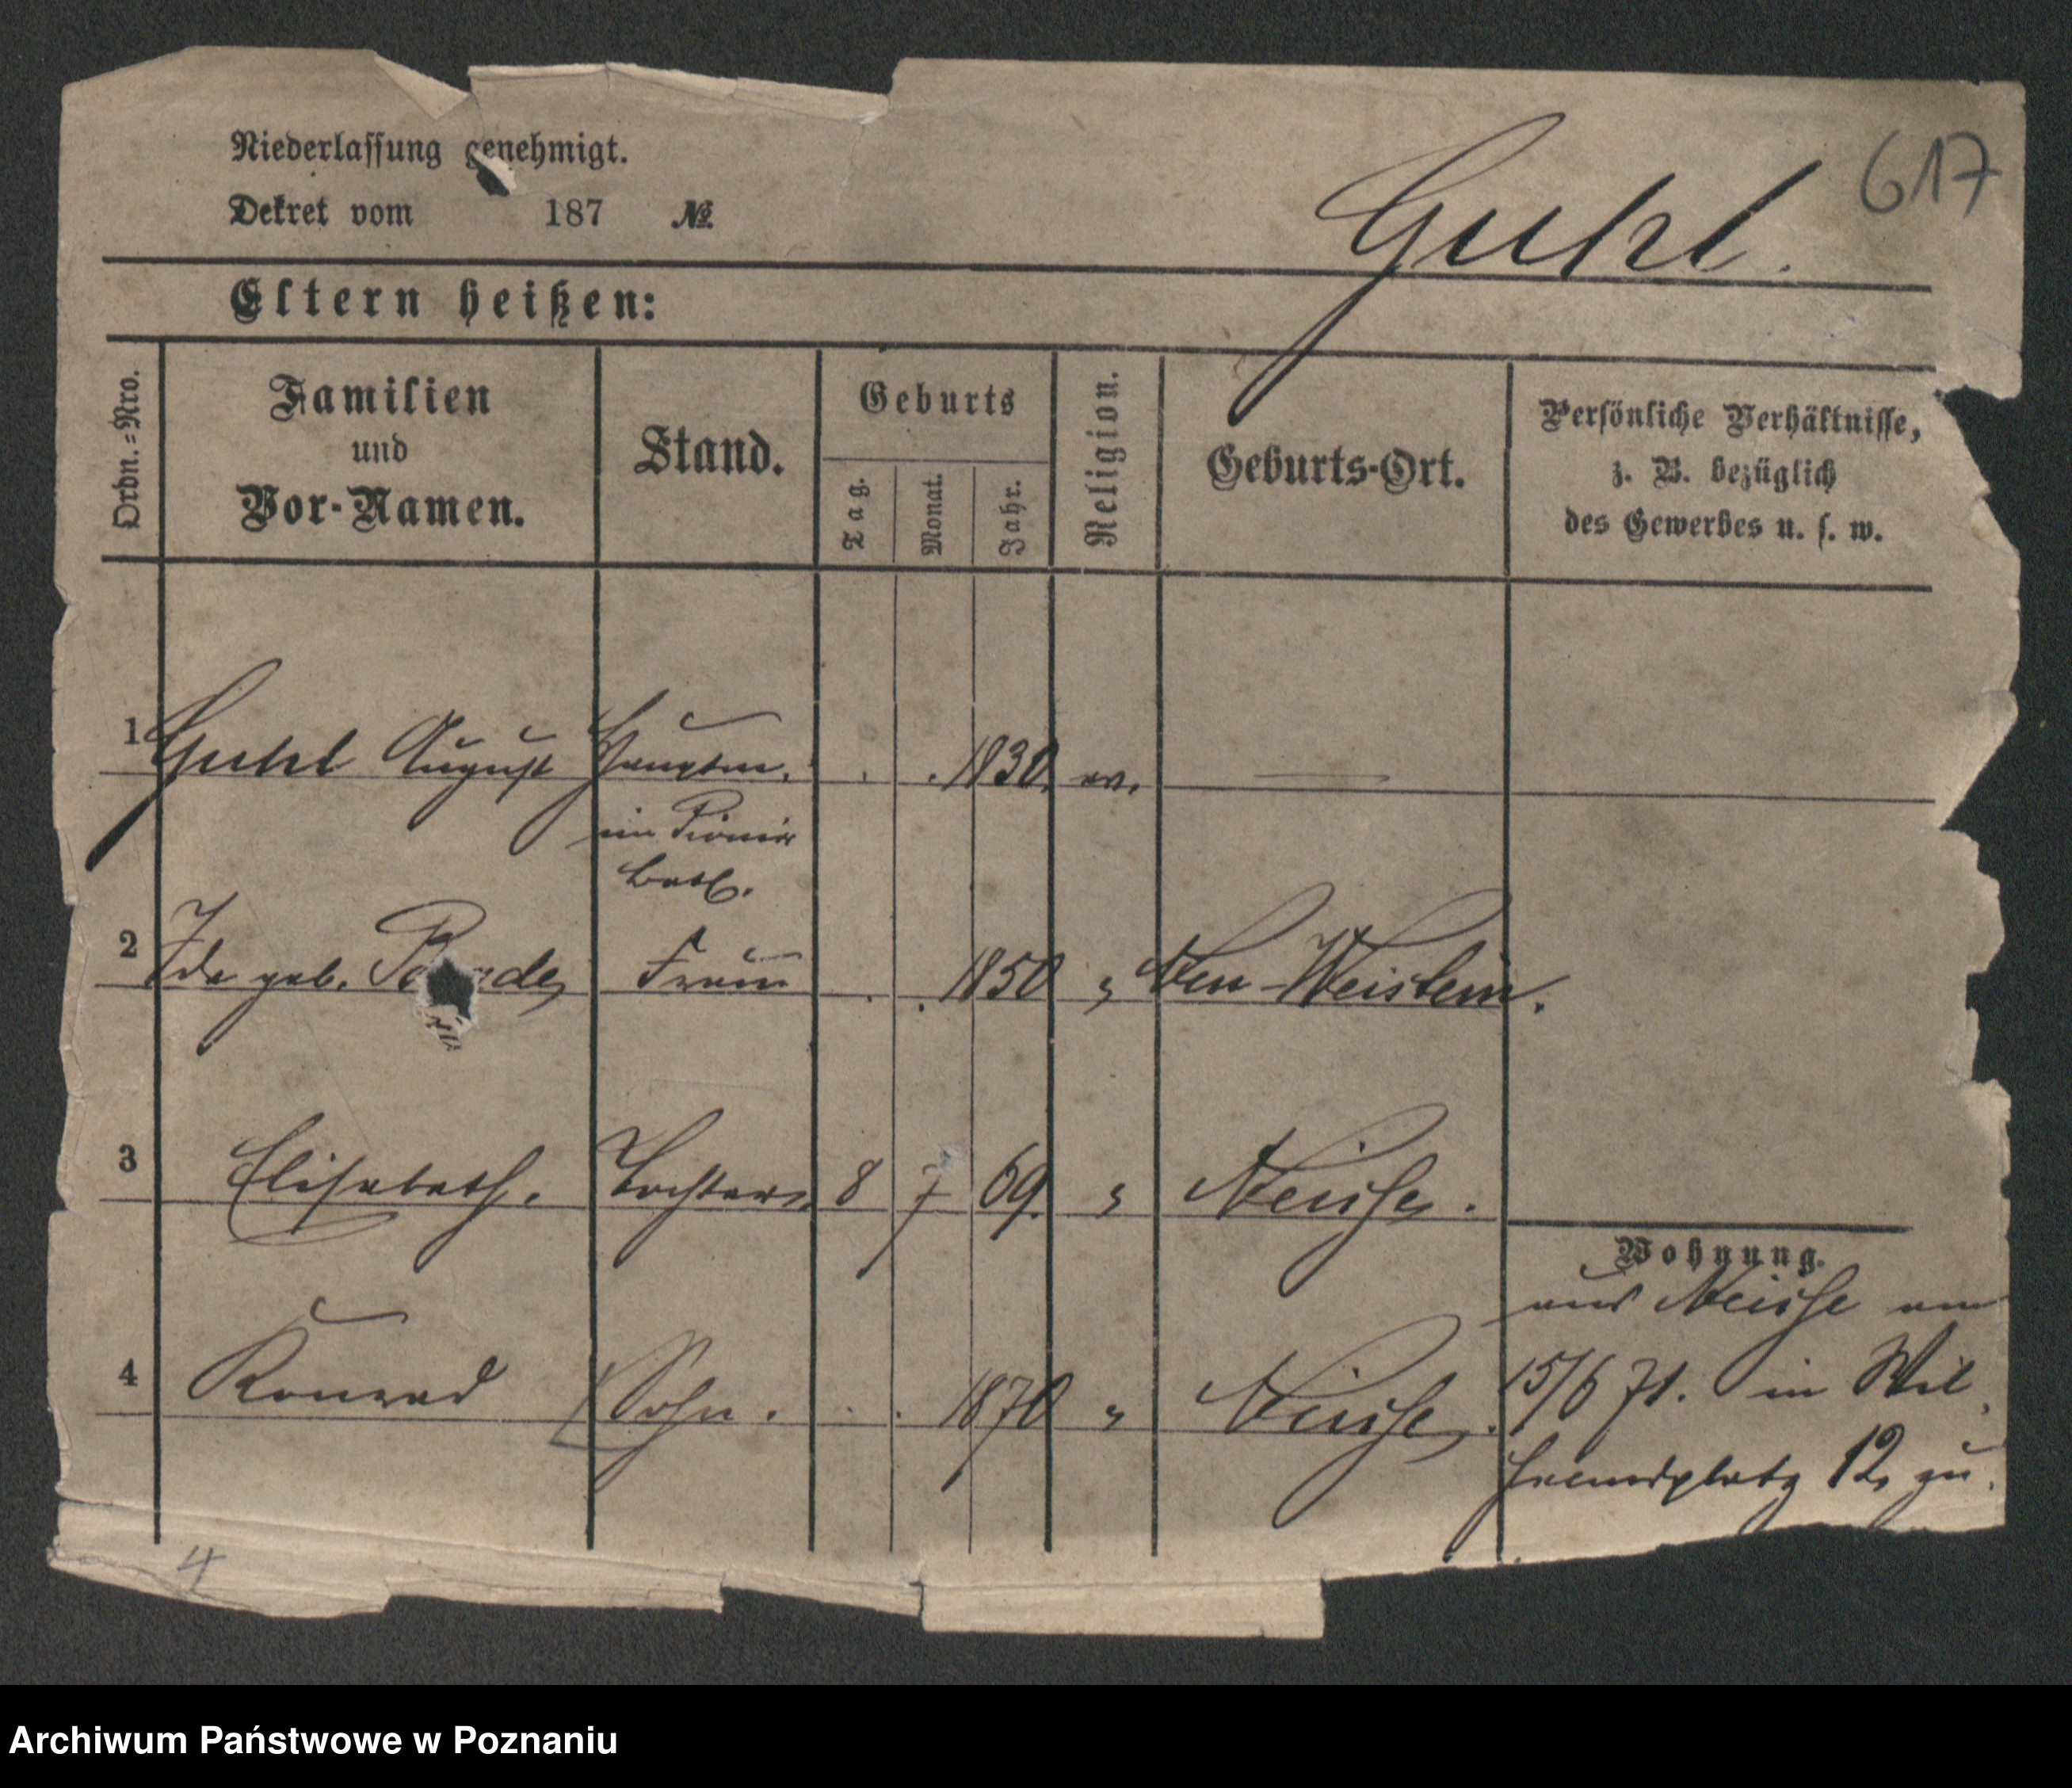 617
Niederlassung genehmigt.
Dekret vom 187 №
Guhl.
Eltern heißen:
Ordn.=Nro.
Familien
und
Vor-Namen.
Stand.
Geburts
Tag.
Monat.
Jahr.
Religion.
Geburts-Ort.
Persönliche Verhältnisse,
z. B. bezüglich
des Gewerbes u. s. w.
1 Guhl August Hauptm. . . 1830. ev. —
im Pionier
Batl.
2 Ida geb. Frau . . 1850 " Neu-Weistein.
3 Elisabeth. Tochter 8 7 69. " Neisse.
Wohnung.
aus Neisse am
4 Konrad Sohn. . . 1870 " Neisse.
15/6 71. in Wil
helmsplatz 12, zu.
4
Archiwum Państwowe w Poznaniu